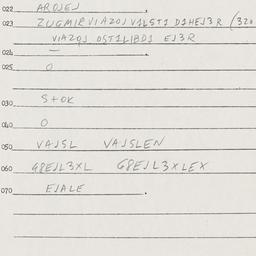 022 AROJEJ
023 ZUGMIRVIAZOJ VILSTI D1HEJ3R (320
VIAZOJ OSTILIBDI EJ3R
024 —
025 O
030 STOK
040 O
050 VAJSL VAJSLEN
060 G8EJL3XL G8EJL3XLEX
070 EJALE